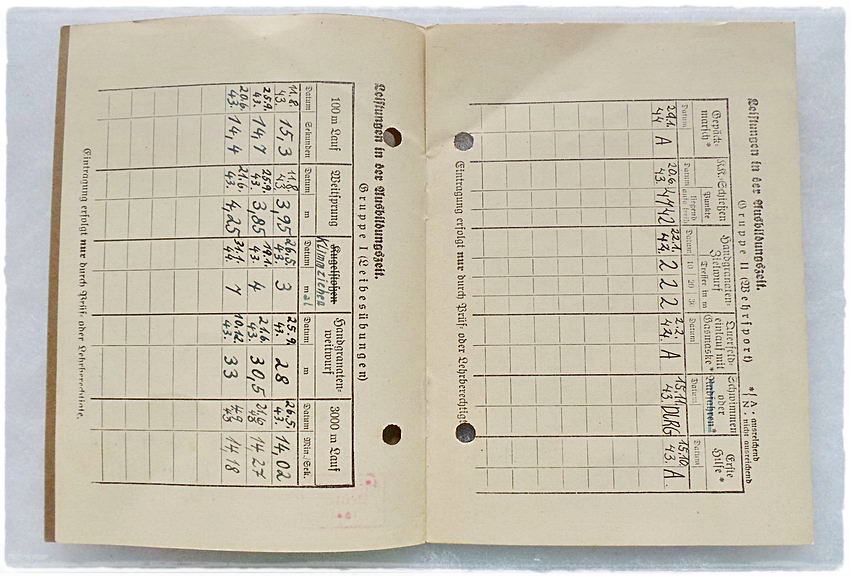 Leistungen in der Ausbildungszeit.
Gruppe I (Leibesübungen)
100 m Lauf Weitsprung Kugelstoßen Klimmziehen Handgranatenweitwurf 3000 m Lauf
Datum Sekunden Datum m Datum m Datum m Datum Min./Sek.
11.8. 43. 15,3 11.8. 43. 3,95 26.5. 43. 3 25.9. 43. 28 26.5. 43. 14,02
25.9. 43. 14,7 25.9. 43. 3,85 19.1. 43. 4 21.6. 43. 30,5 21.6. 43 14,27
20.6. 43. 14,4 21.6. 43. 4,25 31.1. 44. 7 10.12. 43. 33 14,18
Eintragung erfolgt nur durch Prüf- oder Lehrberechtigte.
Leistungen in der Ausbildungszeit.
Gruppe II (Wehrsport)
* { A = ausreichend
N = nicht ausreichend
Gepäckmarsch * KK. Schießen Handgranaten-Zielwurf Querfeldeinlauf mit Gasmaske * Schwimmen oder Radfahren * Erste Hilfe *
Punkte Treffer in m
Datum Datum liegend Datum 10 20 30 Datum Datum Datum
29.1. 44 A 20.6. 43. 42 22.1. 44. 2 2 2 2.2. 44. A 15.11. 43. DLRG 15.10. 43. A.
Eintragung erfolgt nur durch Prüf- oder Lehrberechtigte